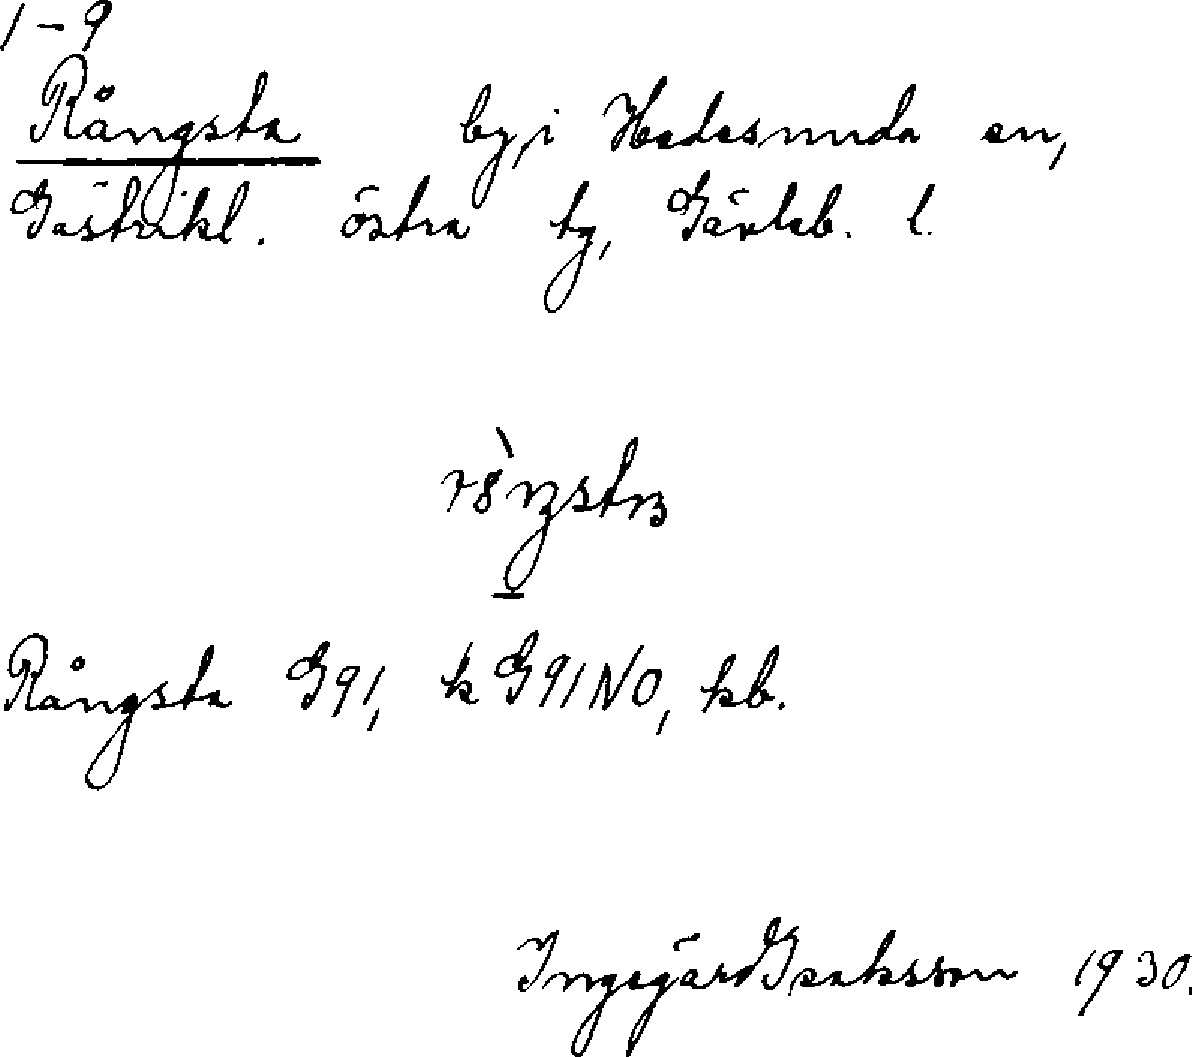 1-9
Rångsta by, i Hedesunda sn,
Gästrikl. östra tg, Gävleb. l.
Rångsta G91, k G91NO, kb.
Ingegärd Isaksson 1930.